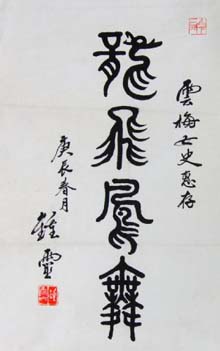 雲梅女史惠存
龍飛鳳舞
庚辰春月
鍾靈